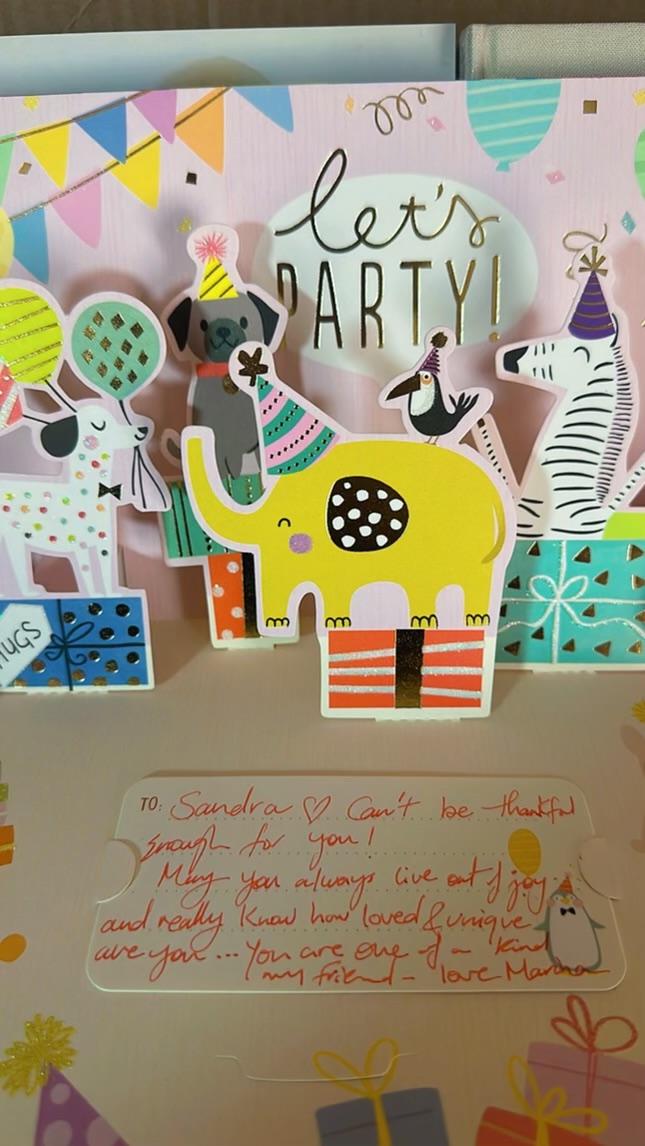 let's
PARTY!
HUGS
TO: Sandra ♡ Can't be thankful
enough for you!
May you always live out of joy
and really know how loved & unique
are you ... You are one of a kind
my friend - love